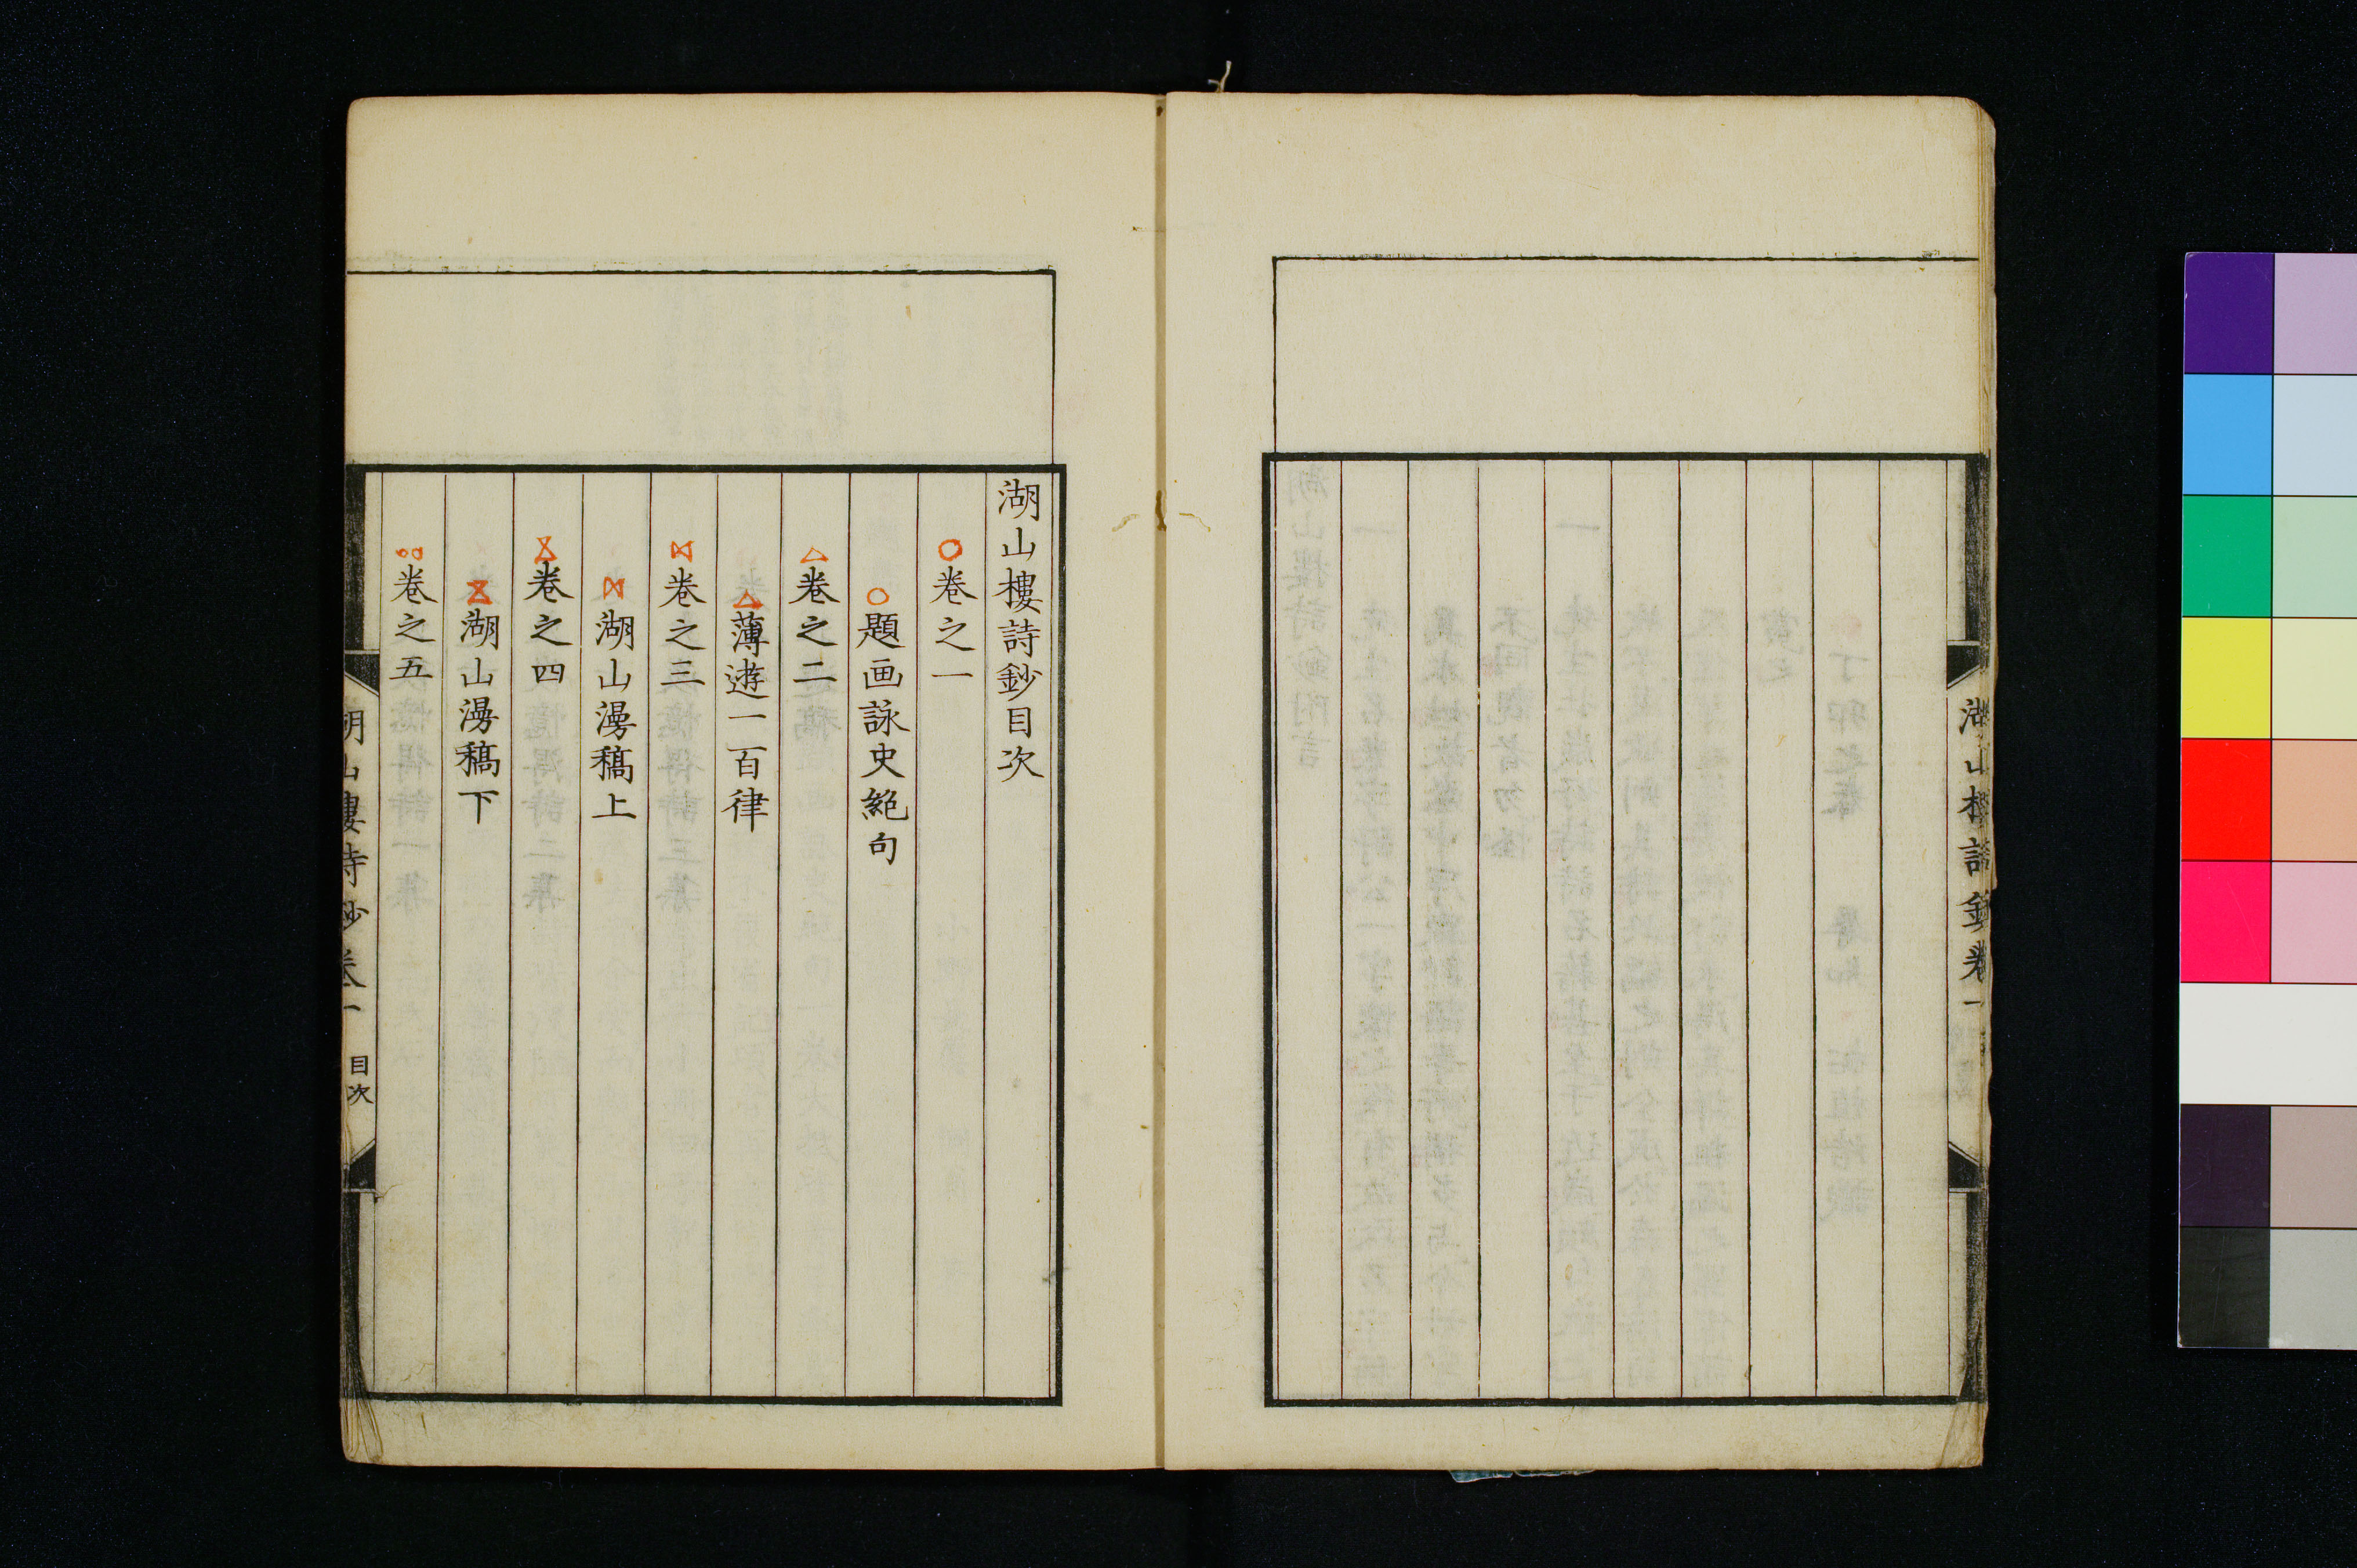 湖山樓詩鈔卷一
湖山樓詩鈔目次
○卷之一
○題画詠史絶句
△卷之二
△薄遊一百律
卷之三
湖山漫稿上
卷之四
湖山漫稿下
卷之五
湖山樓詩鈔卷一 目次